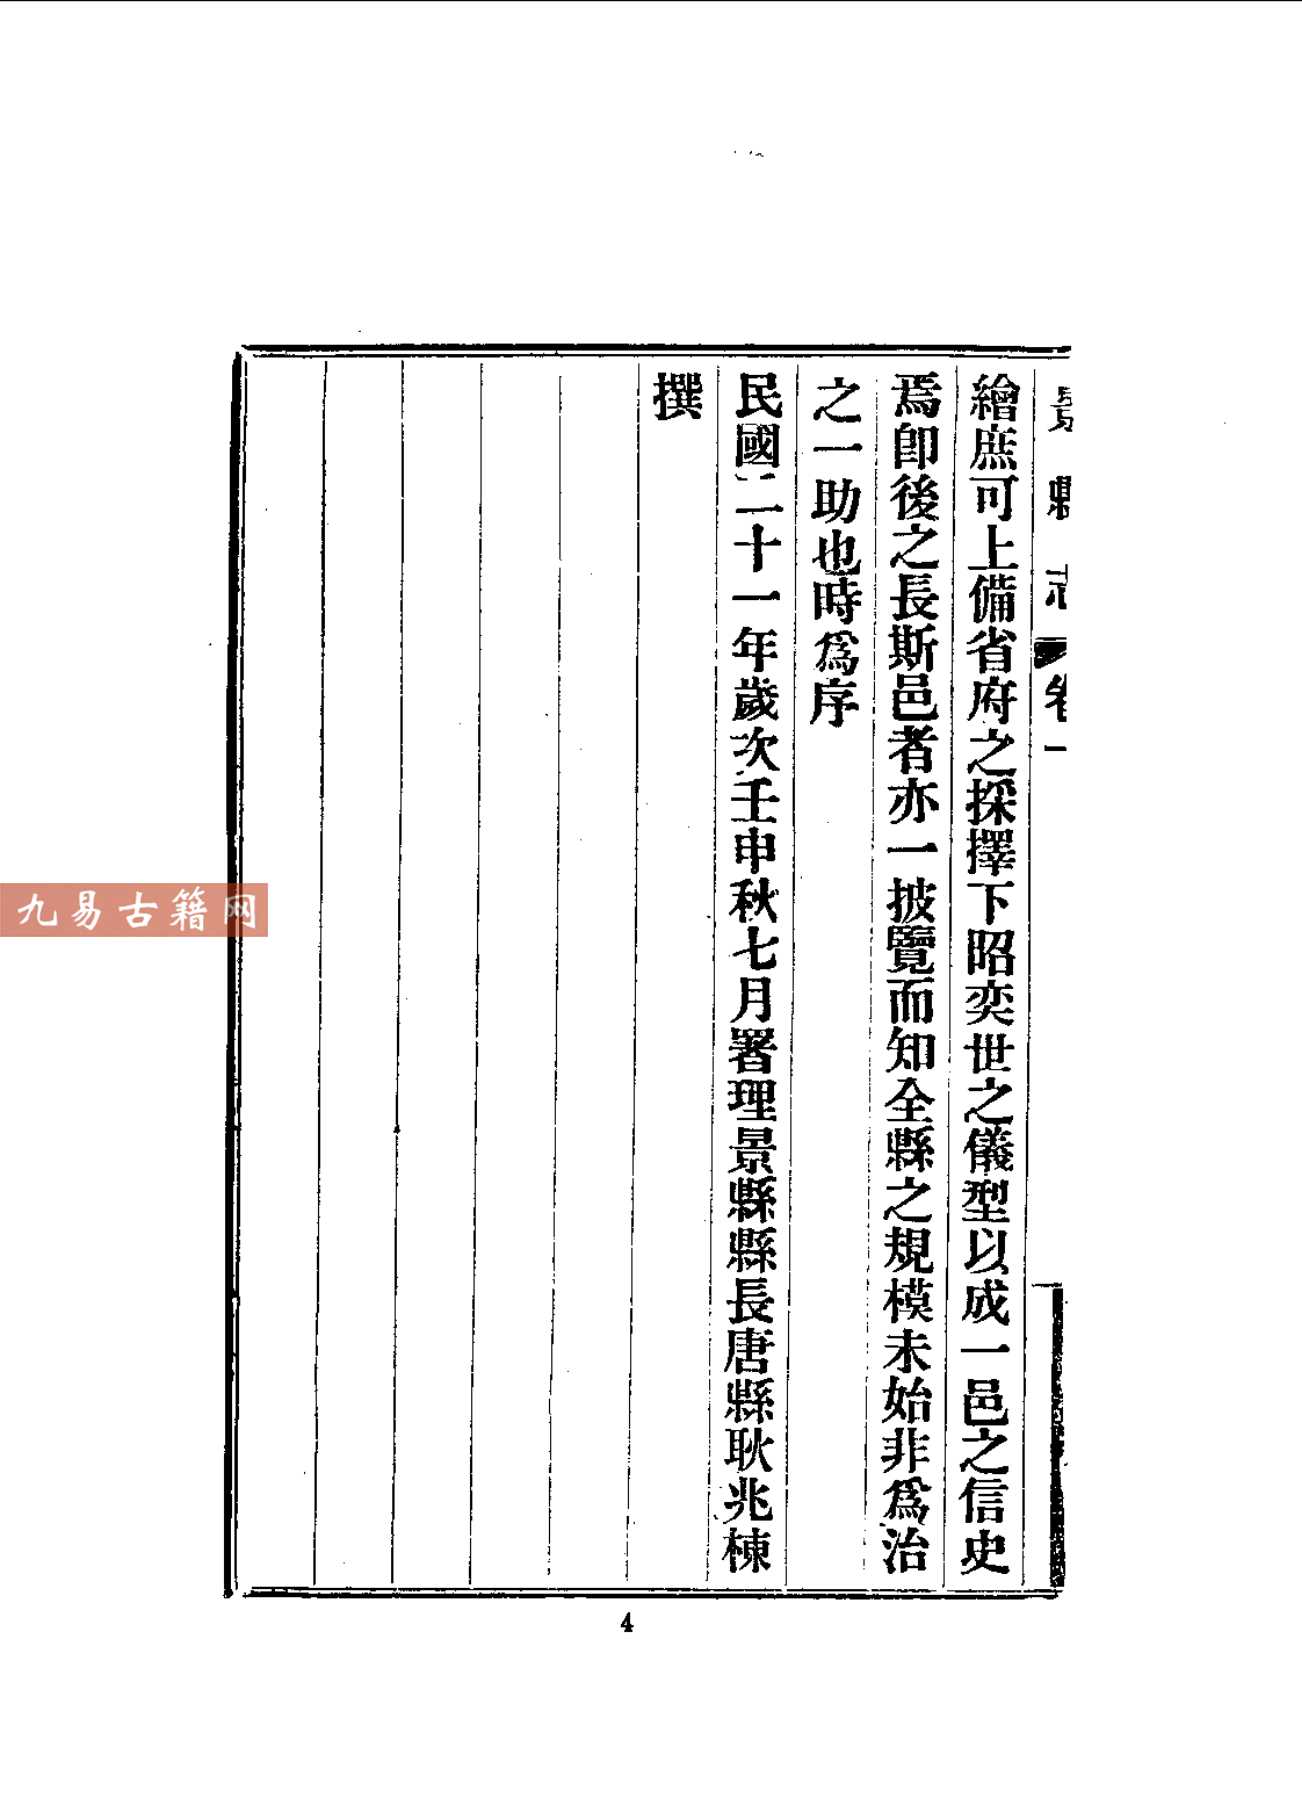 景縣志 卷一
繪庶可上備省府之採擇下昭奕世之儀型以成一邑之信史
焉卽後之長斯邑者亦一披覽而知全縣之規模未始非爲治
之一助也時爲序
民國二十一年歲次壬申秋七月署理景縣縣長唐縣耿兆棟
撰
九易古籍网
4